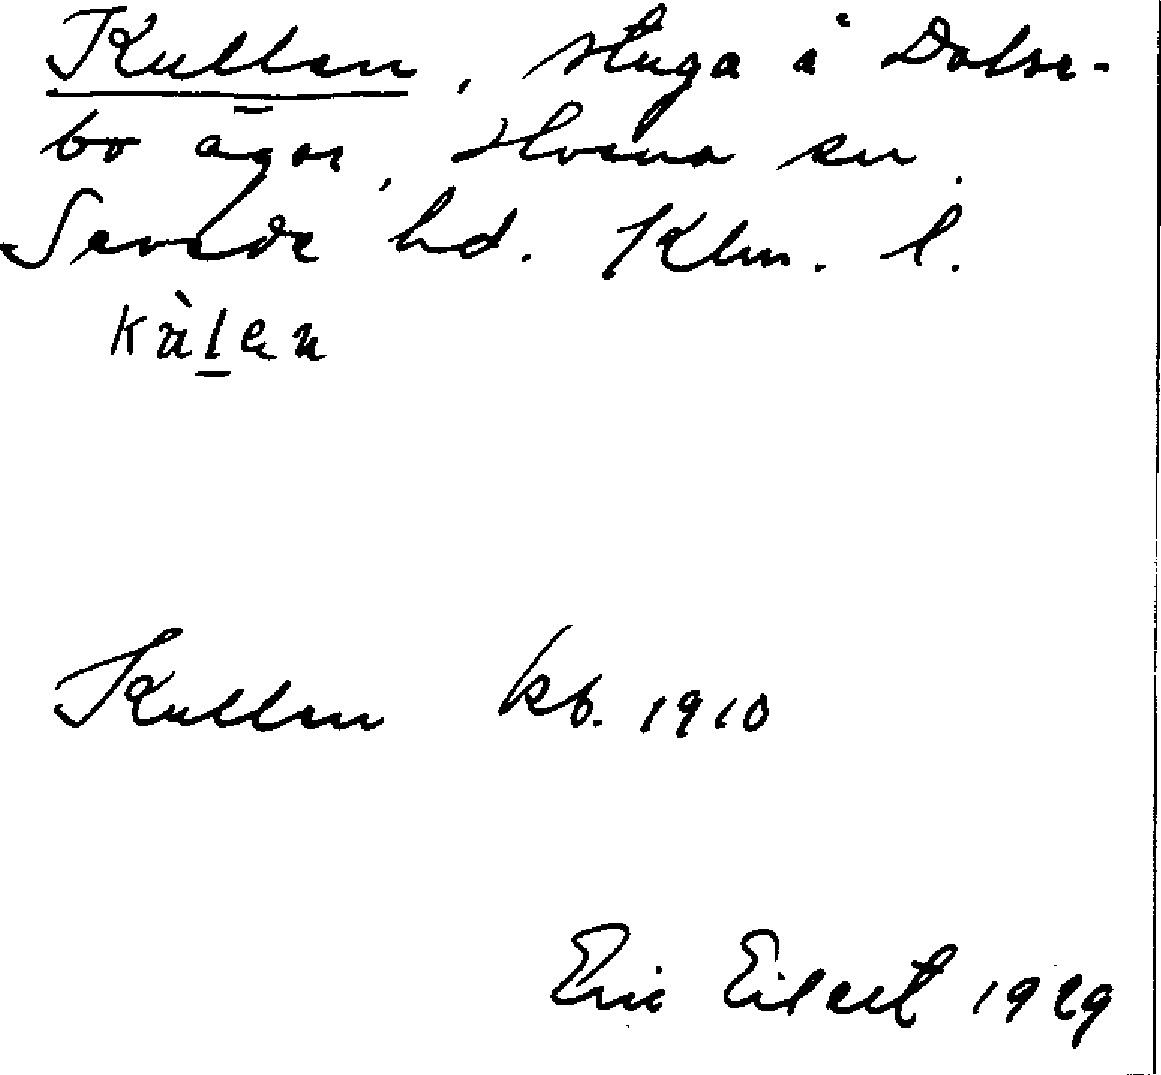 Kullen, stuga å Dalse-
bo ägor, Hvena sn.
Sevede hd. Klm. l.
kùlen
Kullen kb. 1910
Eric Eilert 1929